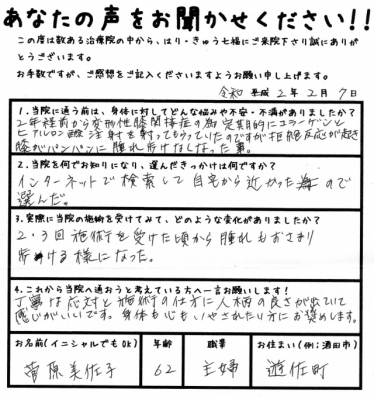 あなたの声をお聞かせください!!
この度は数ある治療院の中から、はり・きゅう七福にご来院下さり誠にありが
とうございます。
お手数ですが、ご感想をご記入くださいますようお願い申し上げます。
令和 平成 2年 2月 7日
1.当院に通う前は、身体に対してどんな悩みや不安・不満がありましたか?
2年程前から変形性膝関節症の為定期的にコラーゲンと
ヒアルロン酸注射を射ってもらっていたのですが拒絶反応が起き
膝がパンパンに腫れ歩けなしなった事。
2.当院を何でお知りになり、選んだきっかけは何ですか?
インターネットで検索して自宅から近かったので
選んだ。
3.実際に当院の施術を受けてみて、どのような変化がありましたか?
2・3回施術を受けた頃から腫れもおさまり
歩ける様になった。
4.これから当院へ通おうと考えている方へ一言お願いします!
丁寧な応対と施術の仕方に人柄の良さが出ていて
感じがいいです。身体も心もいやされたい方にお奨めします。
お名前(イニシャルでもOK) 年齢 職業 お住まい(例:酒田市)
菅原美佐子 62 主婦 遊佐町